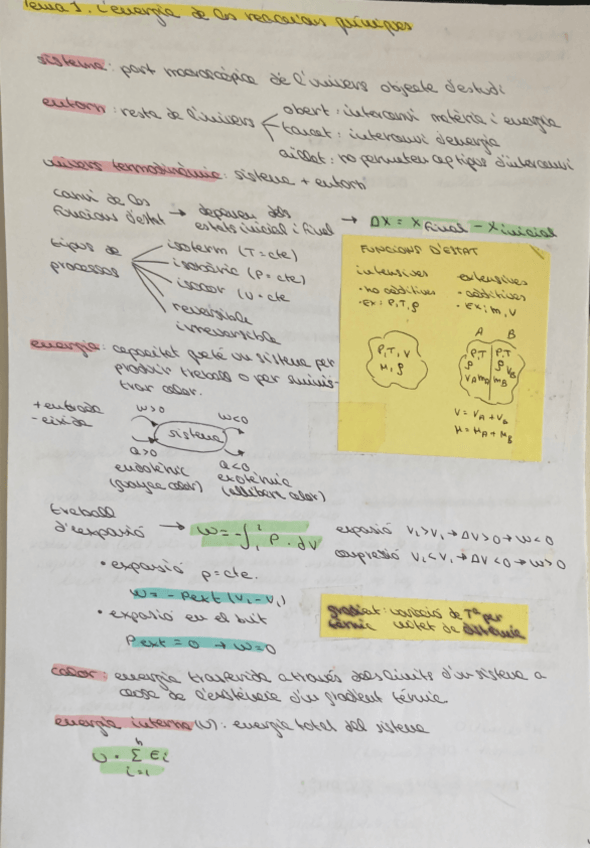 Tema 1. L'energia de les reaccions químiques
sistema: part macroscòpica de l'univers objecte d'estudi
entorn: resta de l'univers
obert: intercanvi matèria i energia
tancat: intercanvi d'energia
aïllat: no permeten cap tipus d'intercanvi
univers termodinàmic: sistema + entorn
canvi de les funcions d'estat → depenen dels estats inicial i final → ΔX = X final - X inicial
tipus de processos
isoterm (T=cte)
isobàric (P=cte)
isocor (V=cte
reversible
irreversible
FUNCIONS D'ESTAT
intensives
• no additives
• Ex: P, T, ρ
extensives
- additives
• Ex: m, V
P, T, V
M, ρ
A B
P,T P,T
ρ ρ
VA mA VB mB
V = VA + VB
M = MA + MB
energia: capacitat que té un sistema per
produir treball o per subminis-
trar calor.
+ entrada
- eixida
w>0 w<0
sistema
Q>0 Q<0
endotèrmic exotèrmic
(guanya calor) (allibera calor)
treball d'expansió → W = -∫ P · dV
expansió V₂>V₁ → ΔV>0 → W<0
compressió V₂<V₁ → ΔV<0 → W>0
• expansió p=cte.
W = - Pext (V₂ - V₁)
• expansió en el buit
Pext = 0 → W=0
gradient: variació de Tª per
tèrmic unitat de distància
calor: energia trasferida a través dels límits d'un sistema a
causa de l'existència d'un gradient tèrmic.
energia interna (U): energia total del sistema
n
U = Σ Ei
i=1